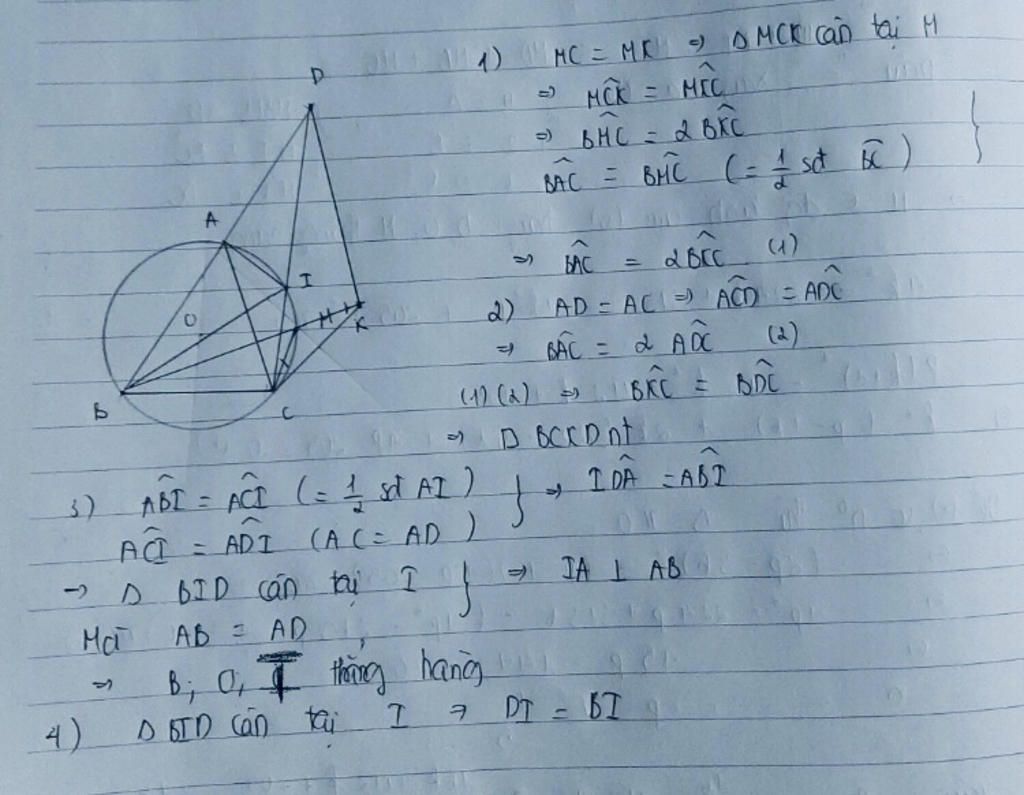 D
A
I
O
M
K
B
C
1) MC = MK => Δ MCK cân tại M
=> MĈK = MK̂C
=> BM̂C = 2 BK̂C
BÂC = BM̂C (= 1/2 sđ BC)
=> BÂC = 2BK̂C (1)
2) AD = AC => AĈD = AD̂C
=> BÂC = 2 AD̂C (2)
(1)(2) => BK̂C = BD̂C
=> D BCKD nt
3) AB̂I = AĈI (= 1/2 sđ AI) } => ID̂A = AB̂I
AĈI = AD̂I (AC = AD)
-> Δ BID cân tại I } => IA ⊥ AB
Mà AB = AD
=> B, O, I thẳng hàng
4) Δ BID cân tại I => DI = BI